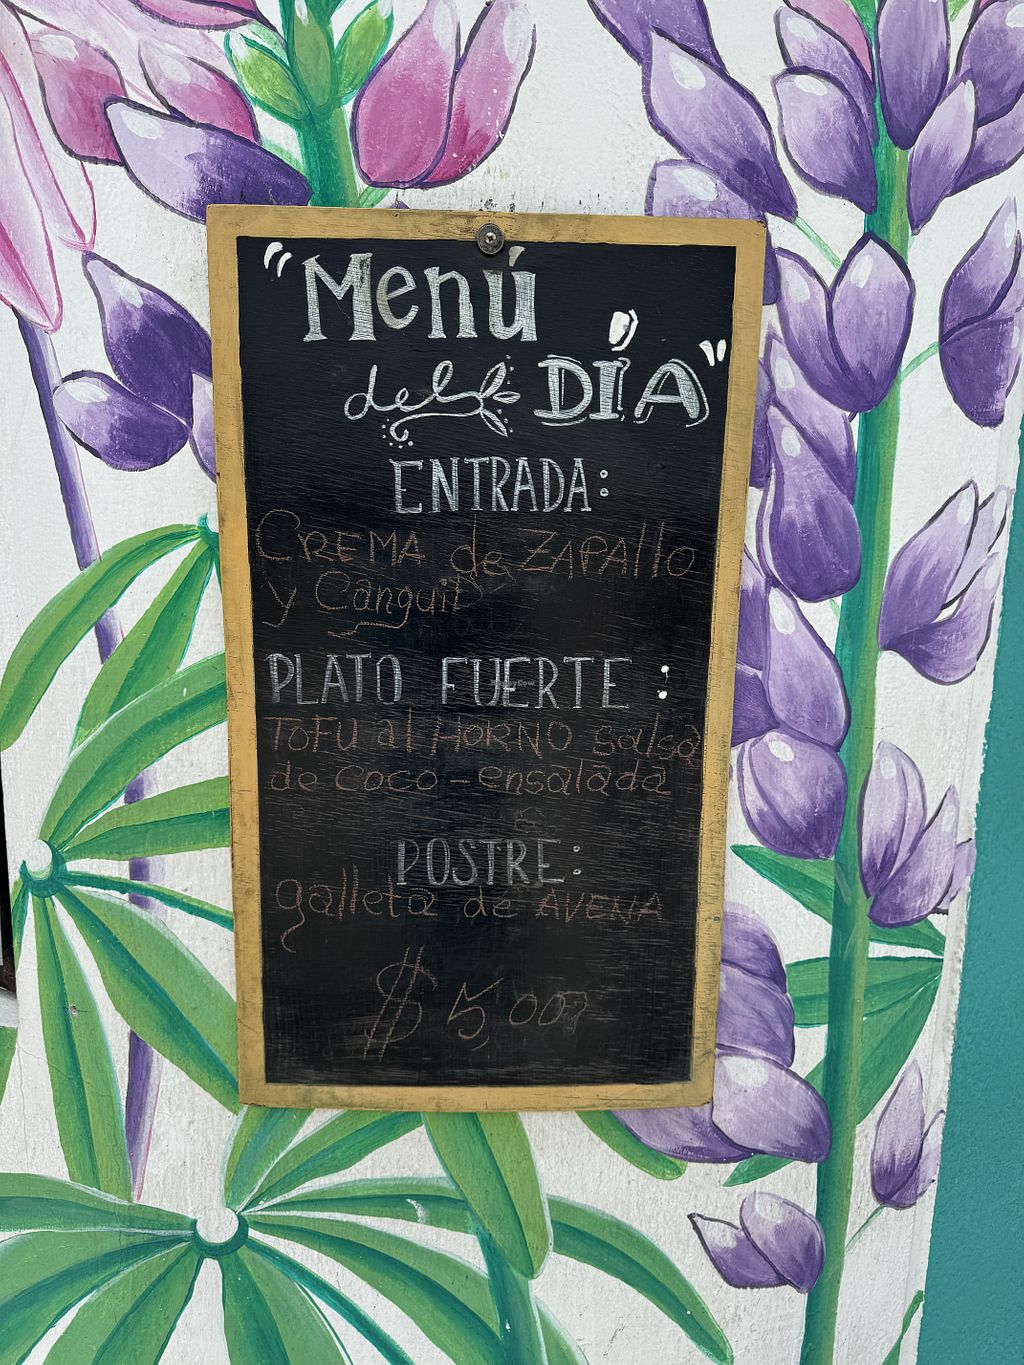 "Menú
del DÍA"
ENTRADA:
CREMA de ZAPAllo
y Canguil
PLATO FUERTE :
TOFU al HORNO salsa
de coco - ensalada
POSTRE:
galleta de AVENA
$ 5,00